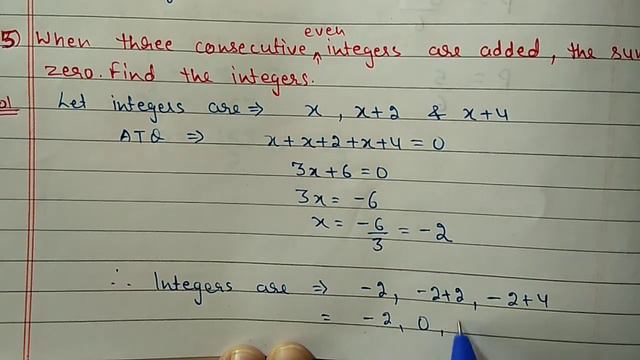 5) When three consecutive even integers are added, the
zero. Find the integers.
Let integers are ⇒ x, x+2 & x+4
ATQ ⇒ x+x+2+x+4=0
3x+6=0
3x=-6
x= -6/3 = -2
∴ Integers are ⇒ -2, -2+2, -2+4
= -2, 0,